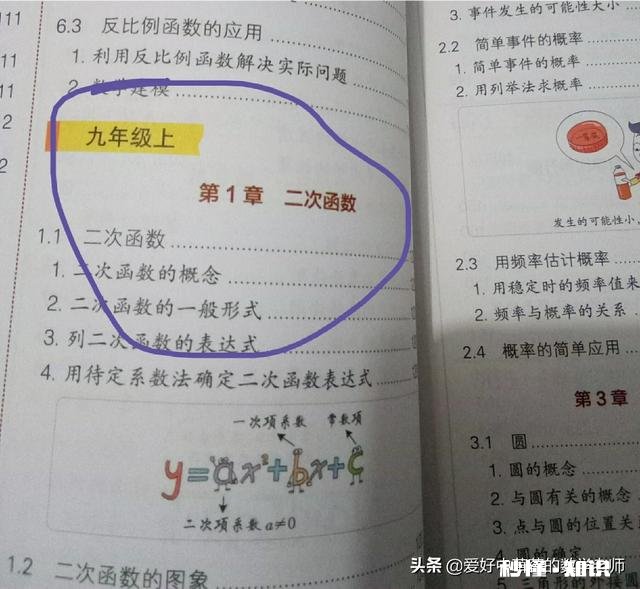 6.3 反比例函数的应用
1. 利用反比例函数解决实际问题
2. 数学建模
九年级上
第1章 二次函数
1.1 二次函数
1. 二次函数的概念
2. 二次函数的一般形式
3. 列二次函数的表达式
4. 用待定系数法确定二次函数表达式
一次项系数 常数项
y=ax²+bx+c
二次项系数a≠0
1.2 二次函数的图象
111
11
11
2
2
3. 事件发生的可能性大小
2.2 简单事件的概率
1. 简单事件的概率
2. 用列举法求概率
发生的可能性小,
2.3 用频率估计概率
1. 用稳定时的频率值来
2. 频率与概率的关系
2.4 概率的简单应用
第3章
3.1 圆
1. 圆的概念
2. 与圆有关的概念
3. 点与圆的位置关
4. 圆的确定
5. 三角形的外接圆
头条 @爱好中
的数学老师